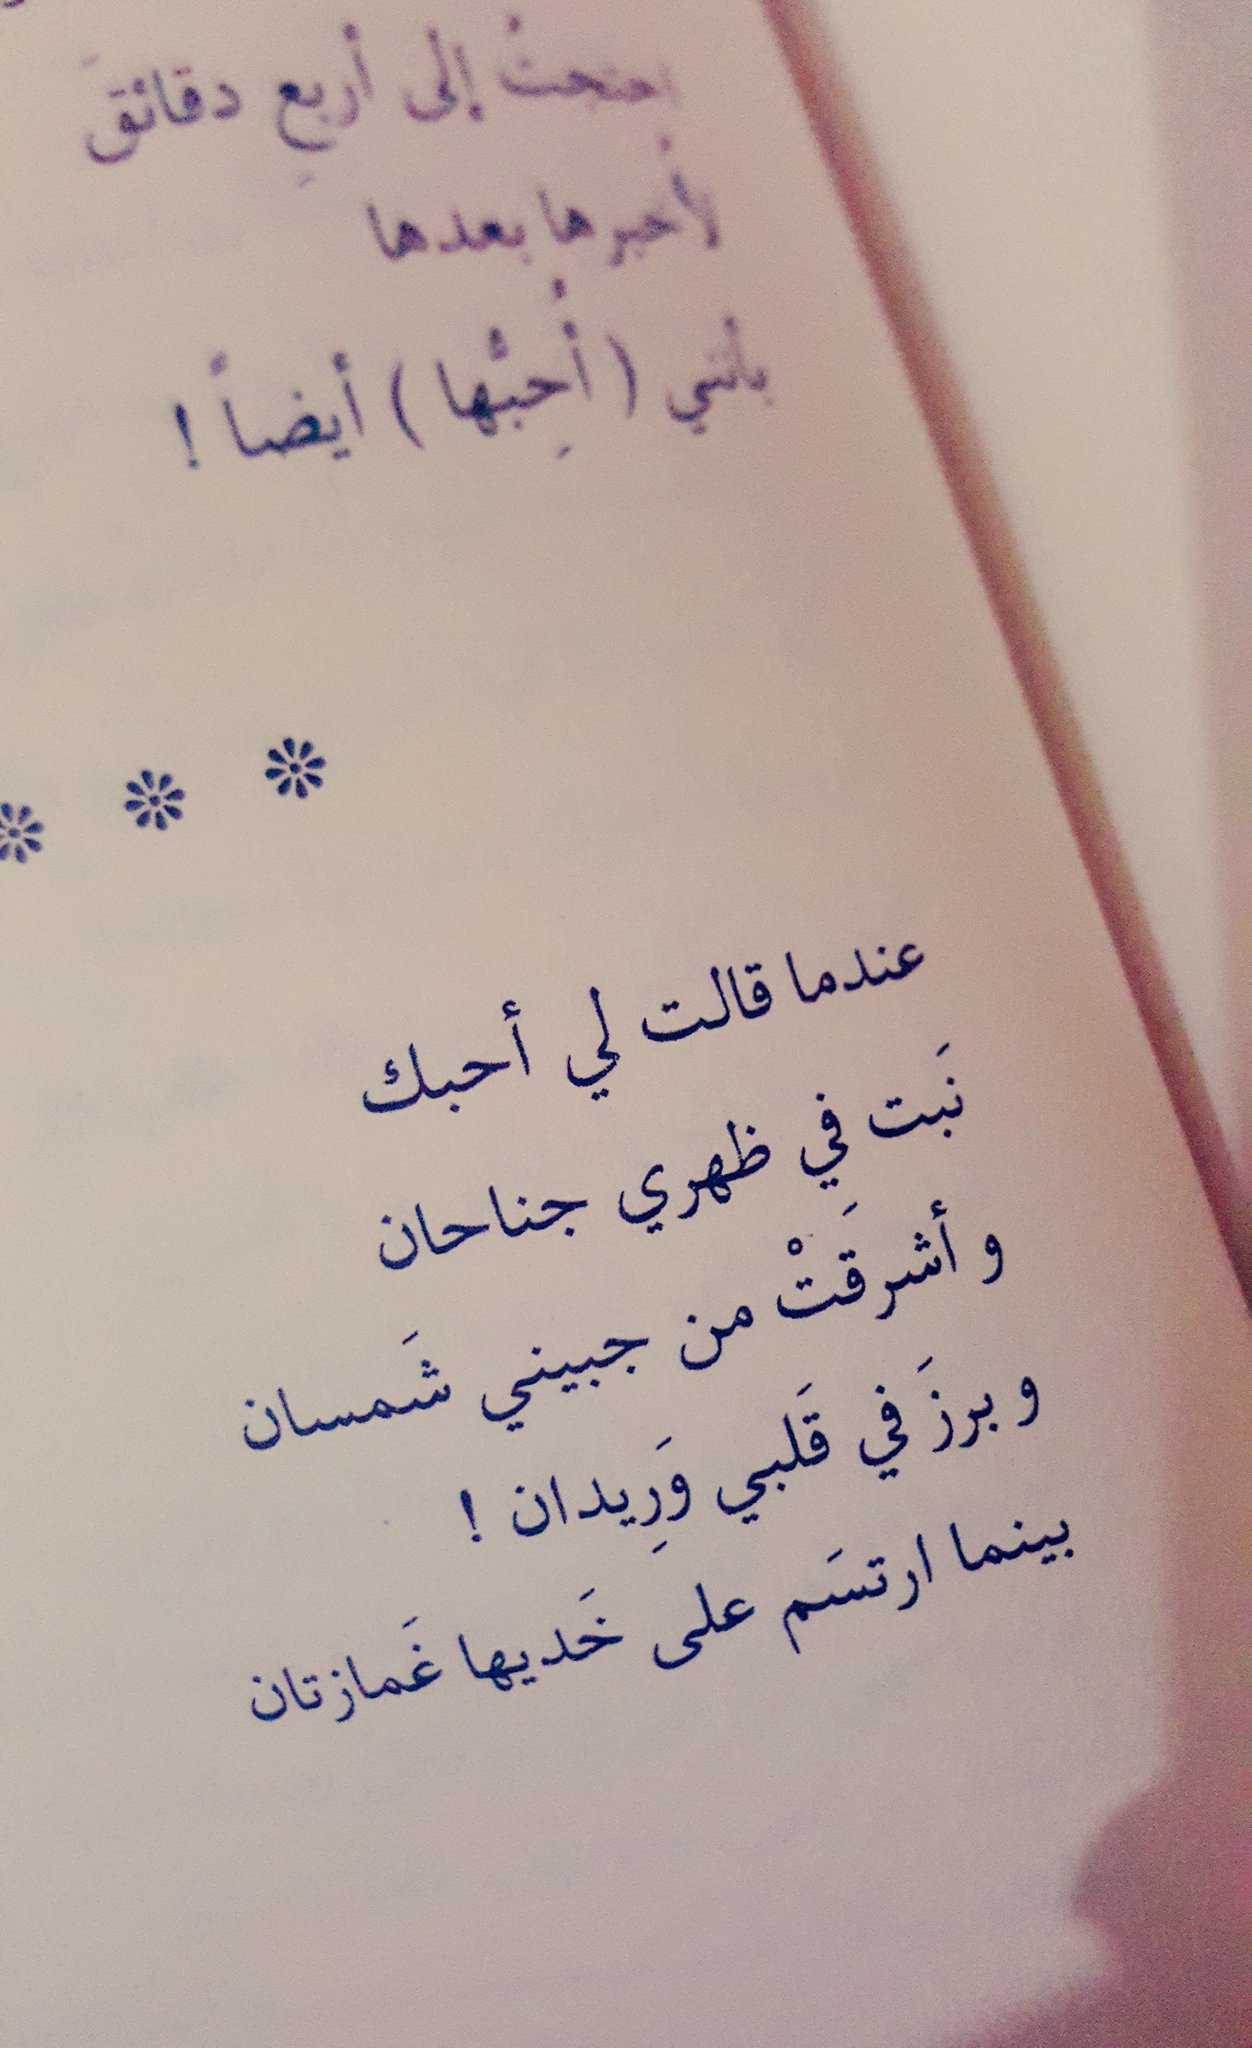 احتجتُ إلى أربعِ دقائقَ
لأُخبرها بعدها
بأنني ( أُحِبُّها ) أيضاً !
عندما قالت لي أحبك
نَبت في ظهري جناحان
و أشرقَتْ من جبيني شَمسان
و برزَ في قَلبي وَرِيدان !
بينما ارتسَم على خَديها غَمازتان